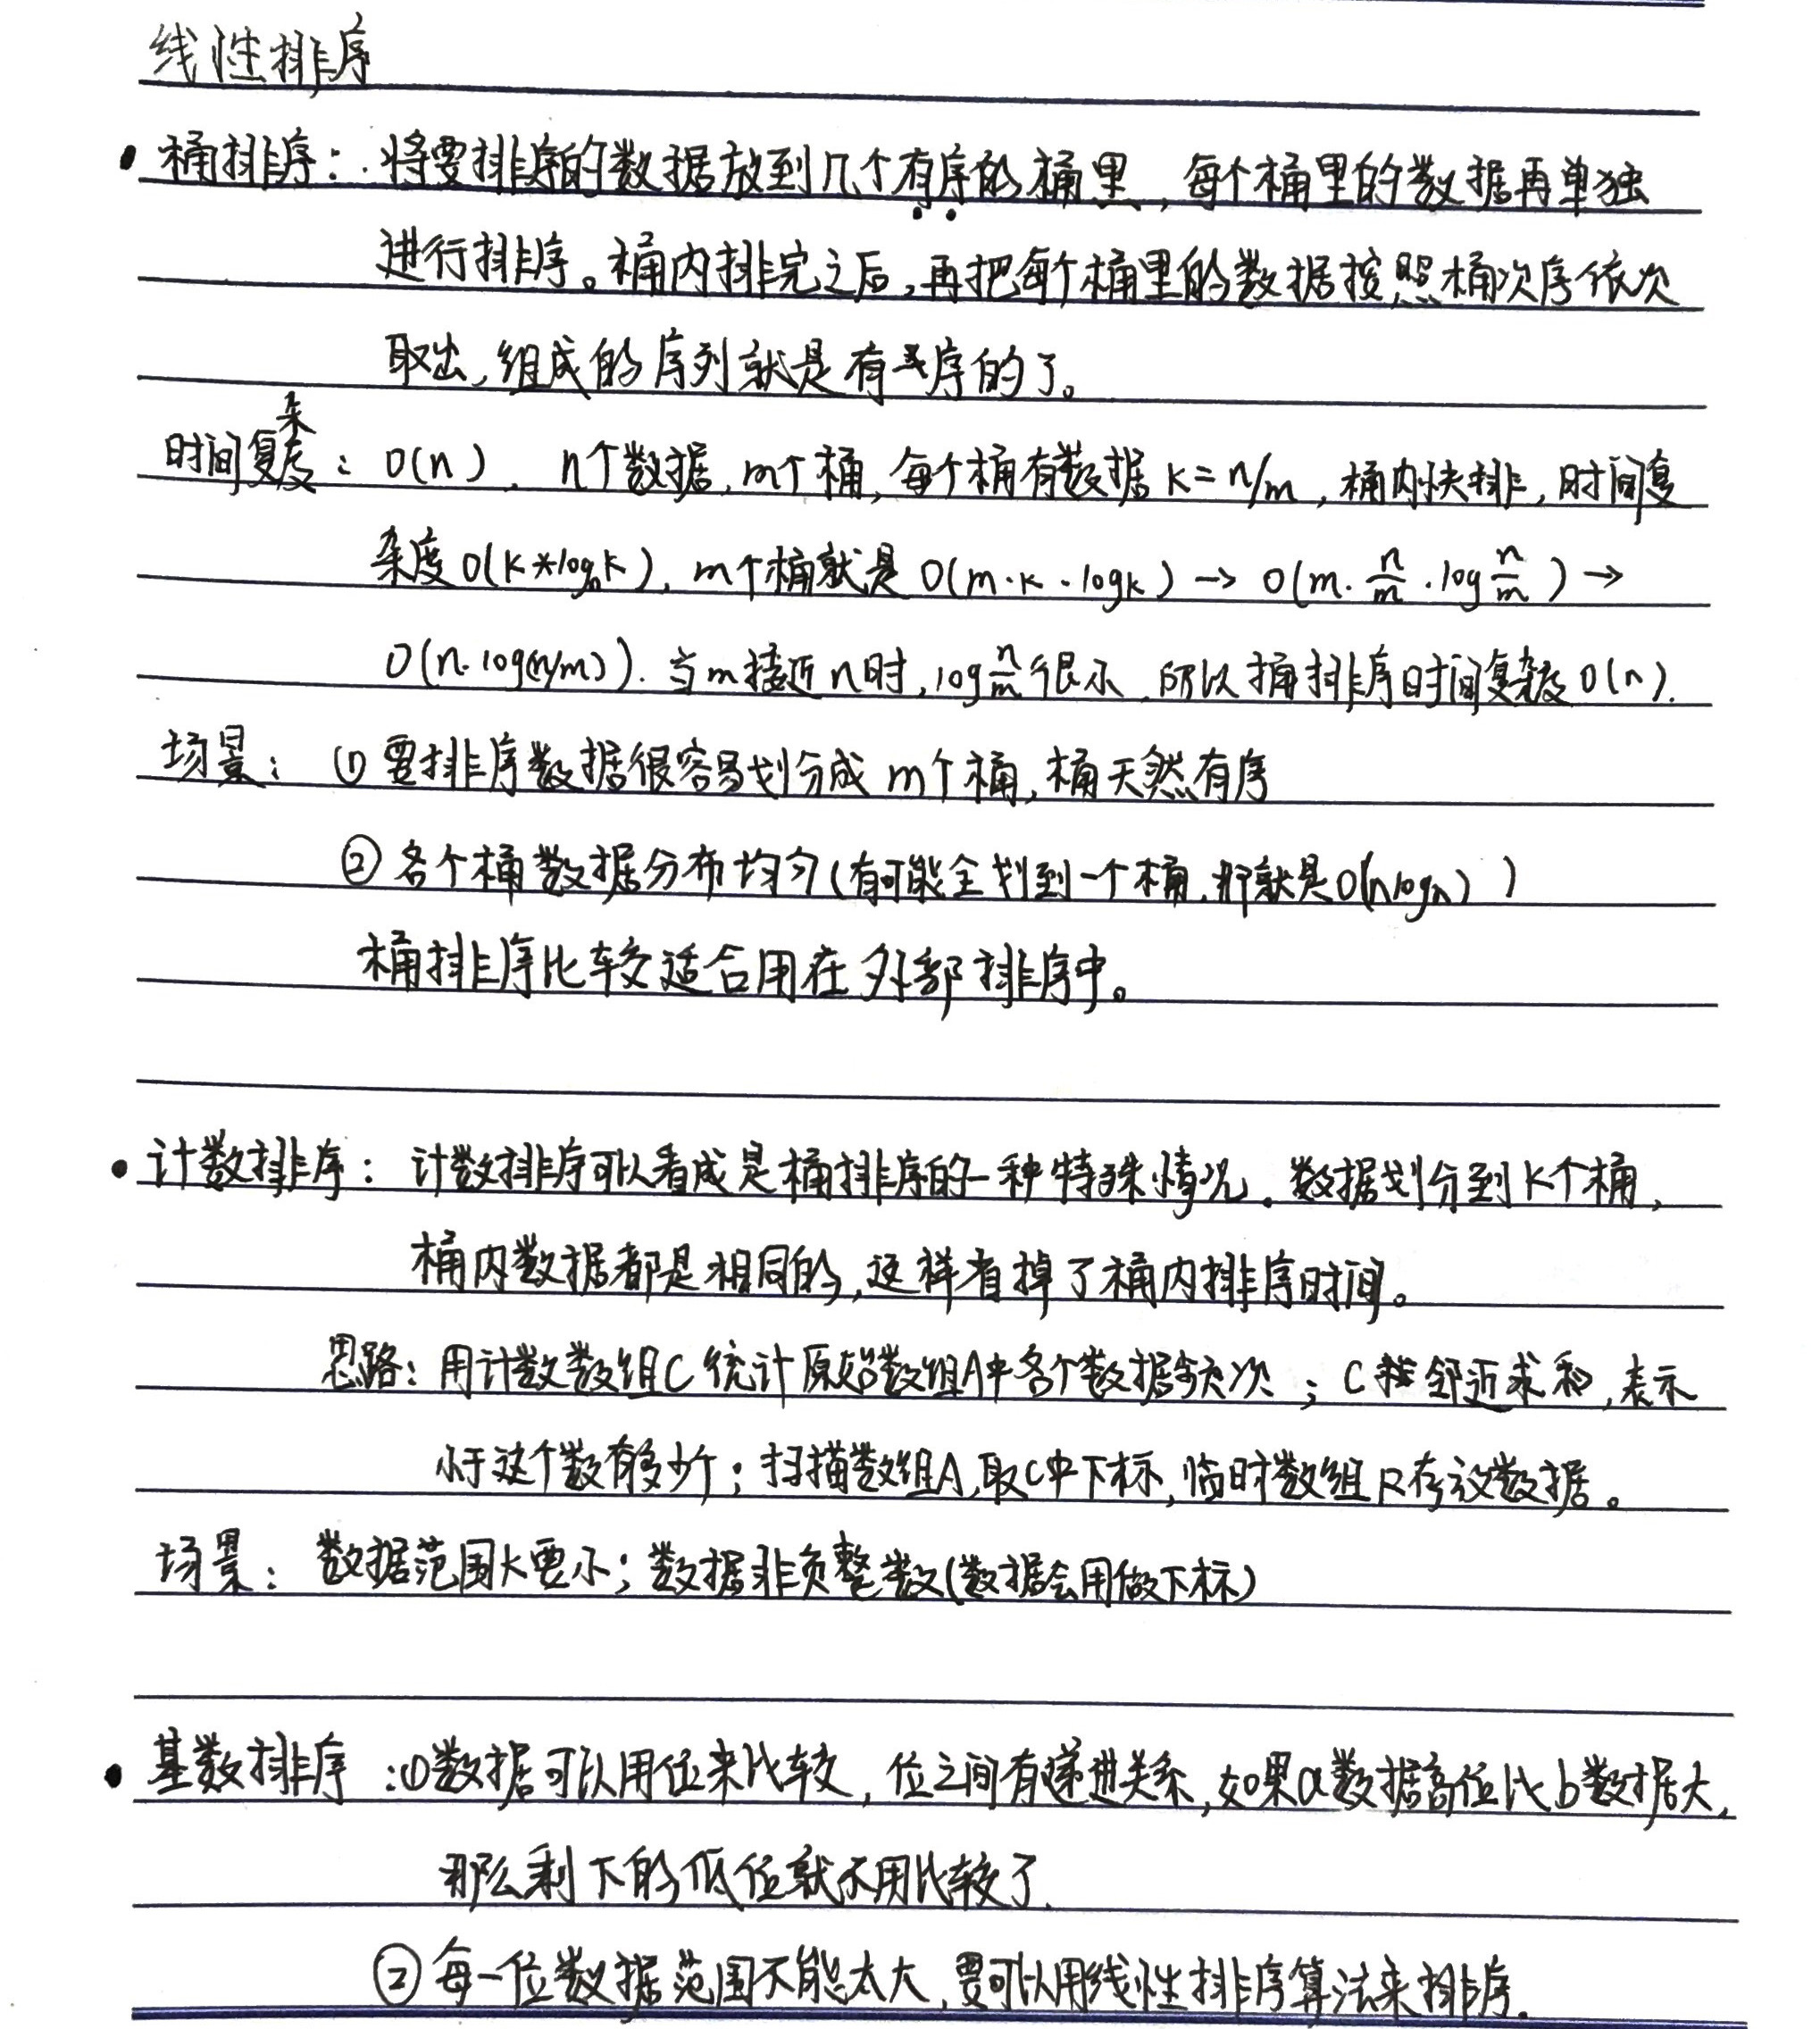 线性排序
• 桶排序：将要排序的数据放到几个有序的桶里，每个桶里的数据再单独
进行排序。桶内排完之后，再把每个桶里的数据按照桶次序依次
取出，组成的序列就是有序的了。
时间复杂度：O(n)，n个数据，m个桶，每个桶有数据 k=n/m，桶内快排，时间复
杂度 O(k*logk)，m个桶就是 O(m·k·logk) → O(m·n/m·log n/m) →
O(n·log(n/m))．当m接近n时，log n/m 很小，所以桶排序时间复杂度 O(n)．
场景：① 要排序数据很容易划分成 m个桶，桶天然有序
② 各个桶数据分布均匀（有可能全划到一个桶，那就是O(nlogn)）
桶排序比较适合用在外部排序中。
• 计数排序：计数排序可以看成是桶排序的一种特殊情况。数据划分到K个桶，
桶内数据都是相同的，这样省掉了桶内排序时间。
思路：用计数数组C 统计原始数组A中各个数据频次；C 邻近求和，表示
小于这个数有多少个；扫描数组A，取C中下标，临时数组R存放数据。
场景：数据范围K要小；数据非负整数（数据会用做下标）
• 基数排序：①数据可以用位来比较，位之间有递进关系，如果a数据高位比b数据大，
那么剩下的低位就不用比较了．
② 每一位数据范围不能太大，要可以用线性排序算法来排序．